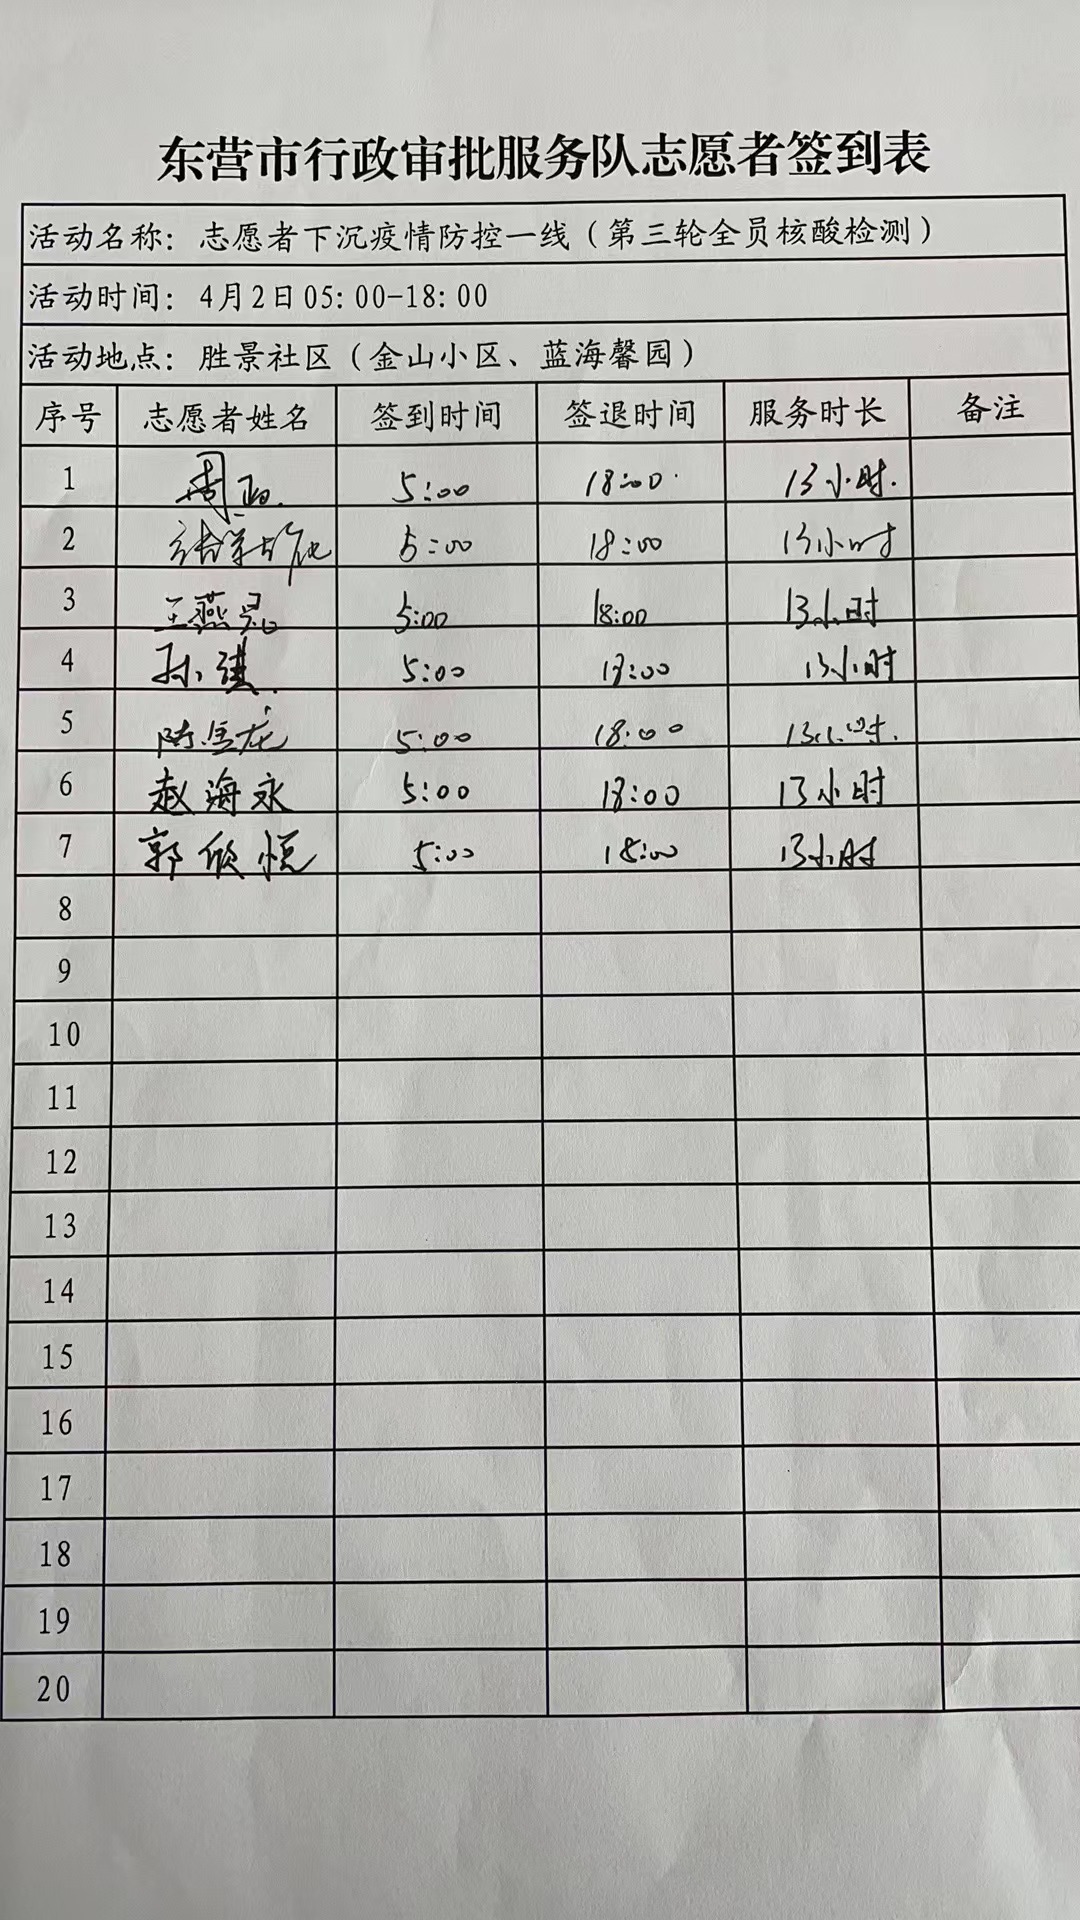 东营市行政审批服务队志愿者签到表
活动名称：志愿者下沉疫情防控一线（第三轮全员核酸检测）
活动时间：4月2日05:00-18:00
活动地点：胜景社区（金山小区、蓝海馨园）
序号 志愿者姓名 签到时间 签退时间 服务时长 备注
1 周 5:00 18:00 13小时
2 5:00 18:00 13小时
3 王燕 5:00 18:00 13小时
4 孙琪 5:00 18:00 13小时
5 陈金龙 5:00 18:00 13小时
6 赵海永 5:00 18:00 13小时
7 郭欣悦 5:00 18:00 13小时
8
9
10
11
12
13
14
15
16
17
18
19
20